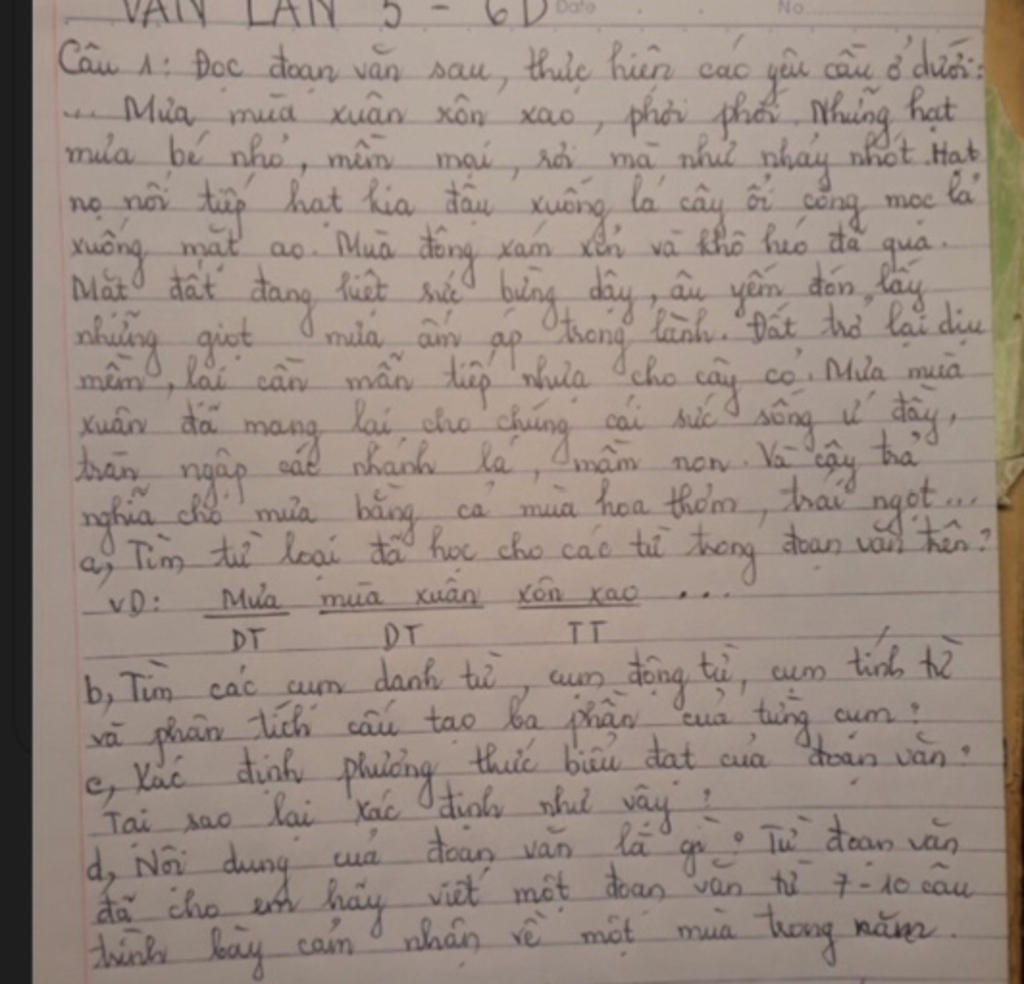 VĂN LẦN 5 - 6D Date No
Câu 1: Đọc đoạn văn sau, thực hiện các yêu cầu ở dưới:
... Mưa mùa xuân xôn xao, phơi phới. Những hạt
mưa bé nhỏ, mềm mại, rơi mà như nhảy nhót. Hạt
nọ nối tiếp hạt kia đậu xuống lá cây ổi cong mọc lả
xuống mặt ao. Mùa đông xám xỉn và khô héo đã qua.
Mặt đất đang kiệt sức bừng dậy, âu yếm đón lấy
những giọt mưa ấm áp trong lành. Đất trở lại dịu
mềm, lại cần mẫn tiếp nhựa cho cây cỏ. Mưa mùa
xuân đã mang lại cho chúng cái sức sống ứ đầy,
tràn ngập các nhánh lá, mầm non. Và cây trả
nghĩa cho mưa bằng cả mùa hoa thơm, trái ngọt...
a, Tìm từ loại đã học cho các từ trong đoạn văn trên?
VD: Mưa mùa xuân xôn xao ...
DT DT TT
b, Tìm các cụm danh từ, cụm động từ, cụm tính từ
và phân tích cấu tạo ba phần của từng cụm?
c, Xác định phương thức biểu đạt của đoạn văn?
Tại sao lại xác định như vậy?
d, Nội dung của đoạn văn là gì? Từ đoạn văn
đã cho em hãy viết một đoạn văn từ 7-10 câu
trình bày cảm nhận về một mùa trong năm.